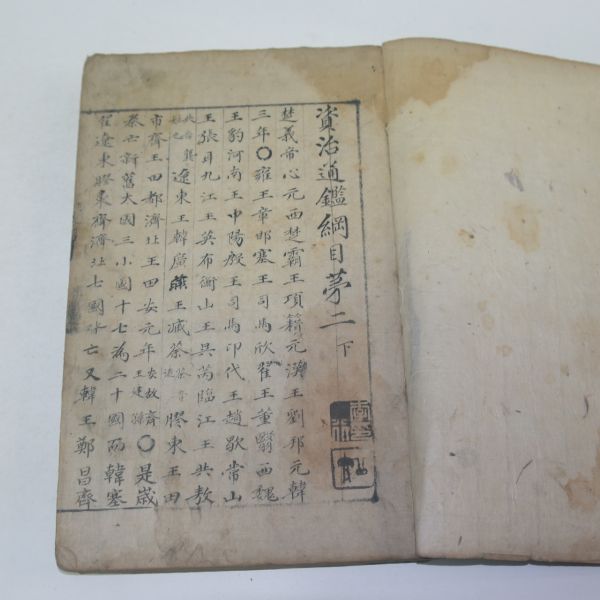 資治通鑑綱目第二下
楚義帝心元西楚霸王項籍元漢王劉邦元韓
三年〇雍王章邯塞王司馬欣翟王董翳西魏
王豹河南王申陽殷王司馬卬代王趙歇常山
王張耳九江王英布衡山王吳芮臨江王共敖
遼東王韓廣燕王臧荼膠東王田
市齊王田都濟北王田安元年〇是歲
秦亡新舊大國三小國十七為二十國而韓塞
翟遼東膠東齊濟北七國皆亡又韓王鄭昌齊